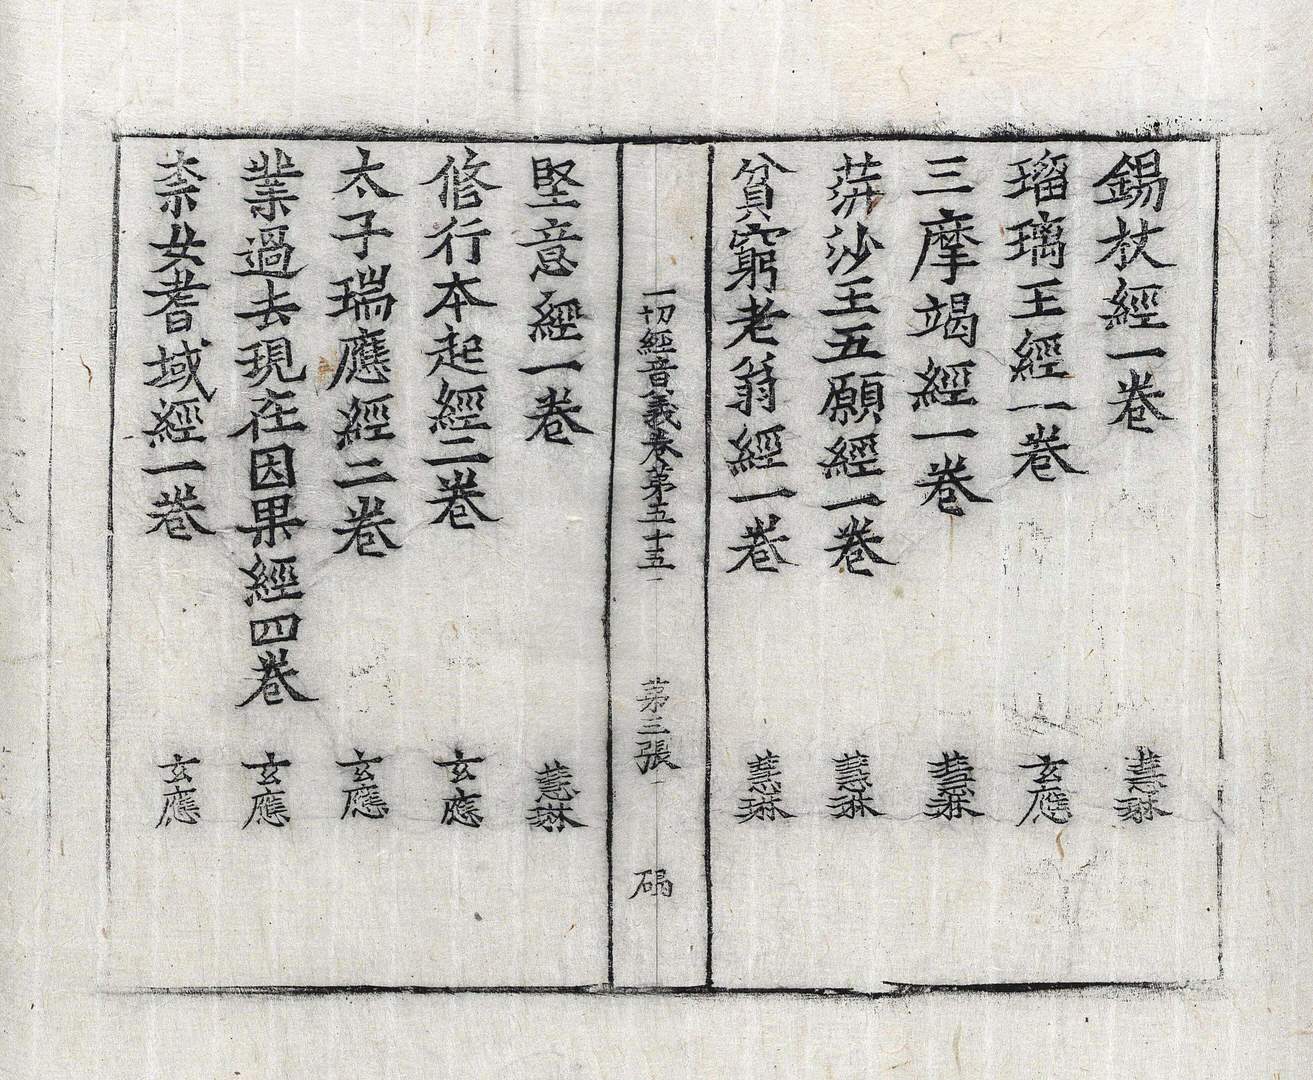 錫杖經一卷 慧琳
瑠璃王經一卷 玄應
三摩竭經一卷 慧琳
蓱沙王五願經一卷 慧琳
貧窮老翁經一卷 慧琳
一切經音義卷第五十五 第三張 碢
堅意經一卷 慧琳
修行本起經二卷 玄應
太子瑞應經二卷 玄應
業過去現在因果經四卷 玄應
柰女耆域經一卷 玄應